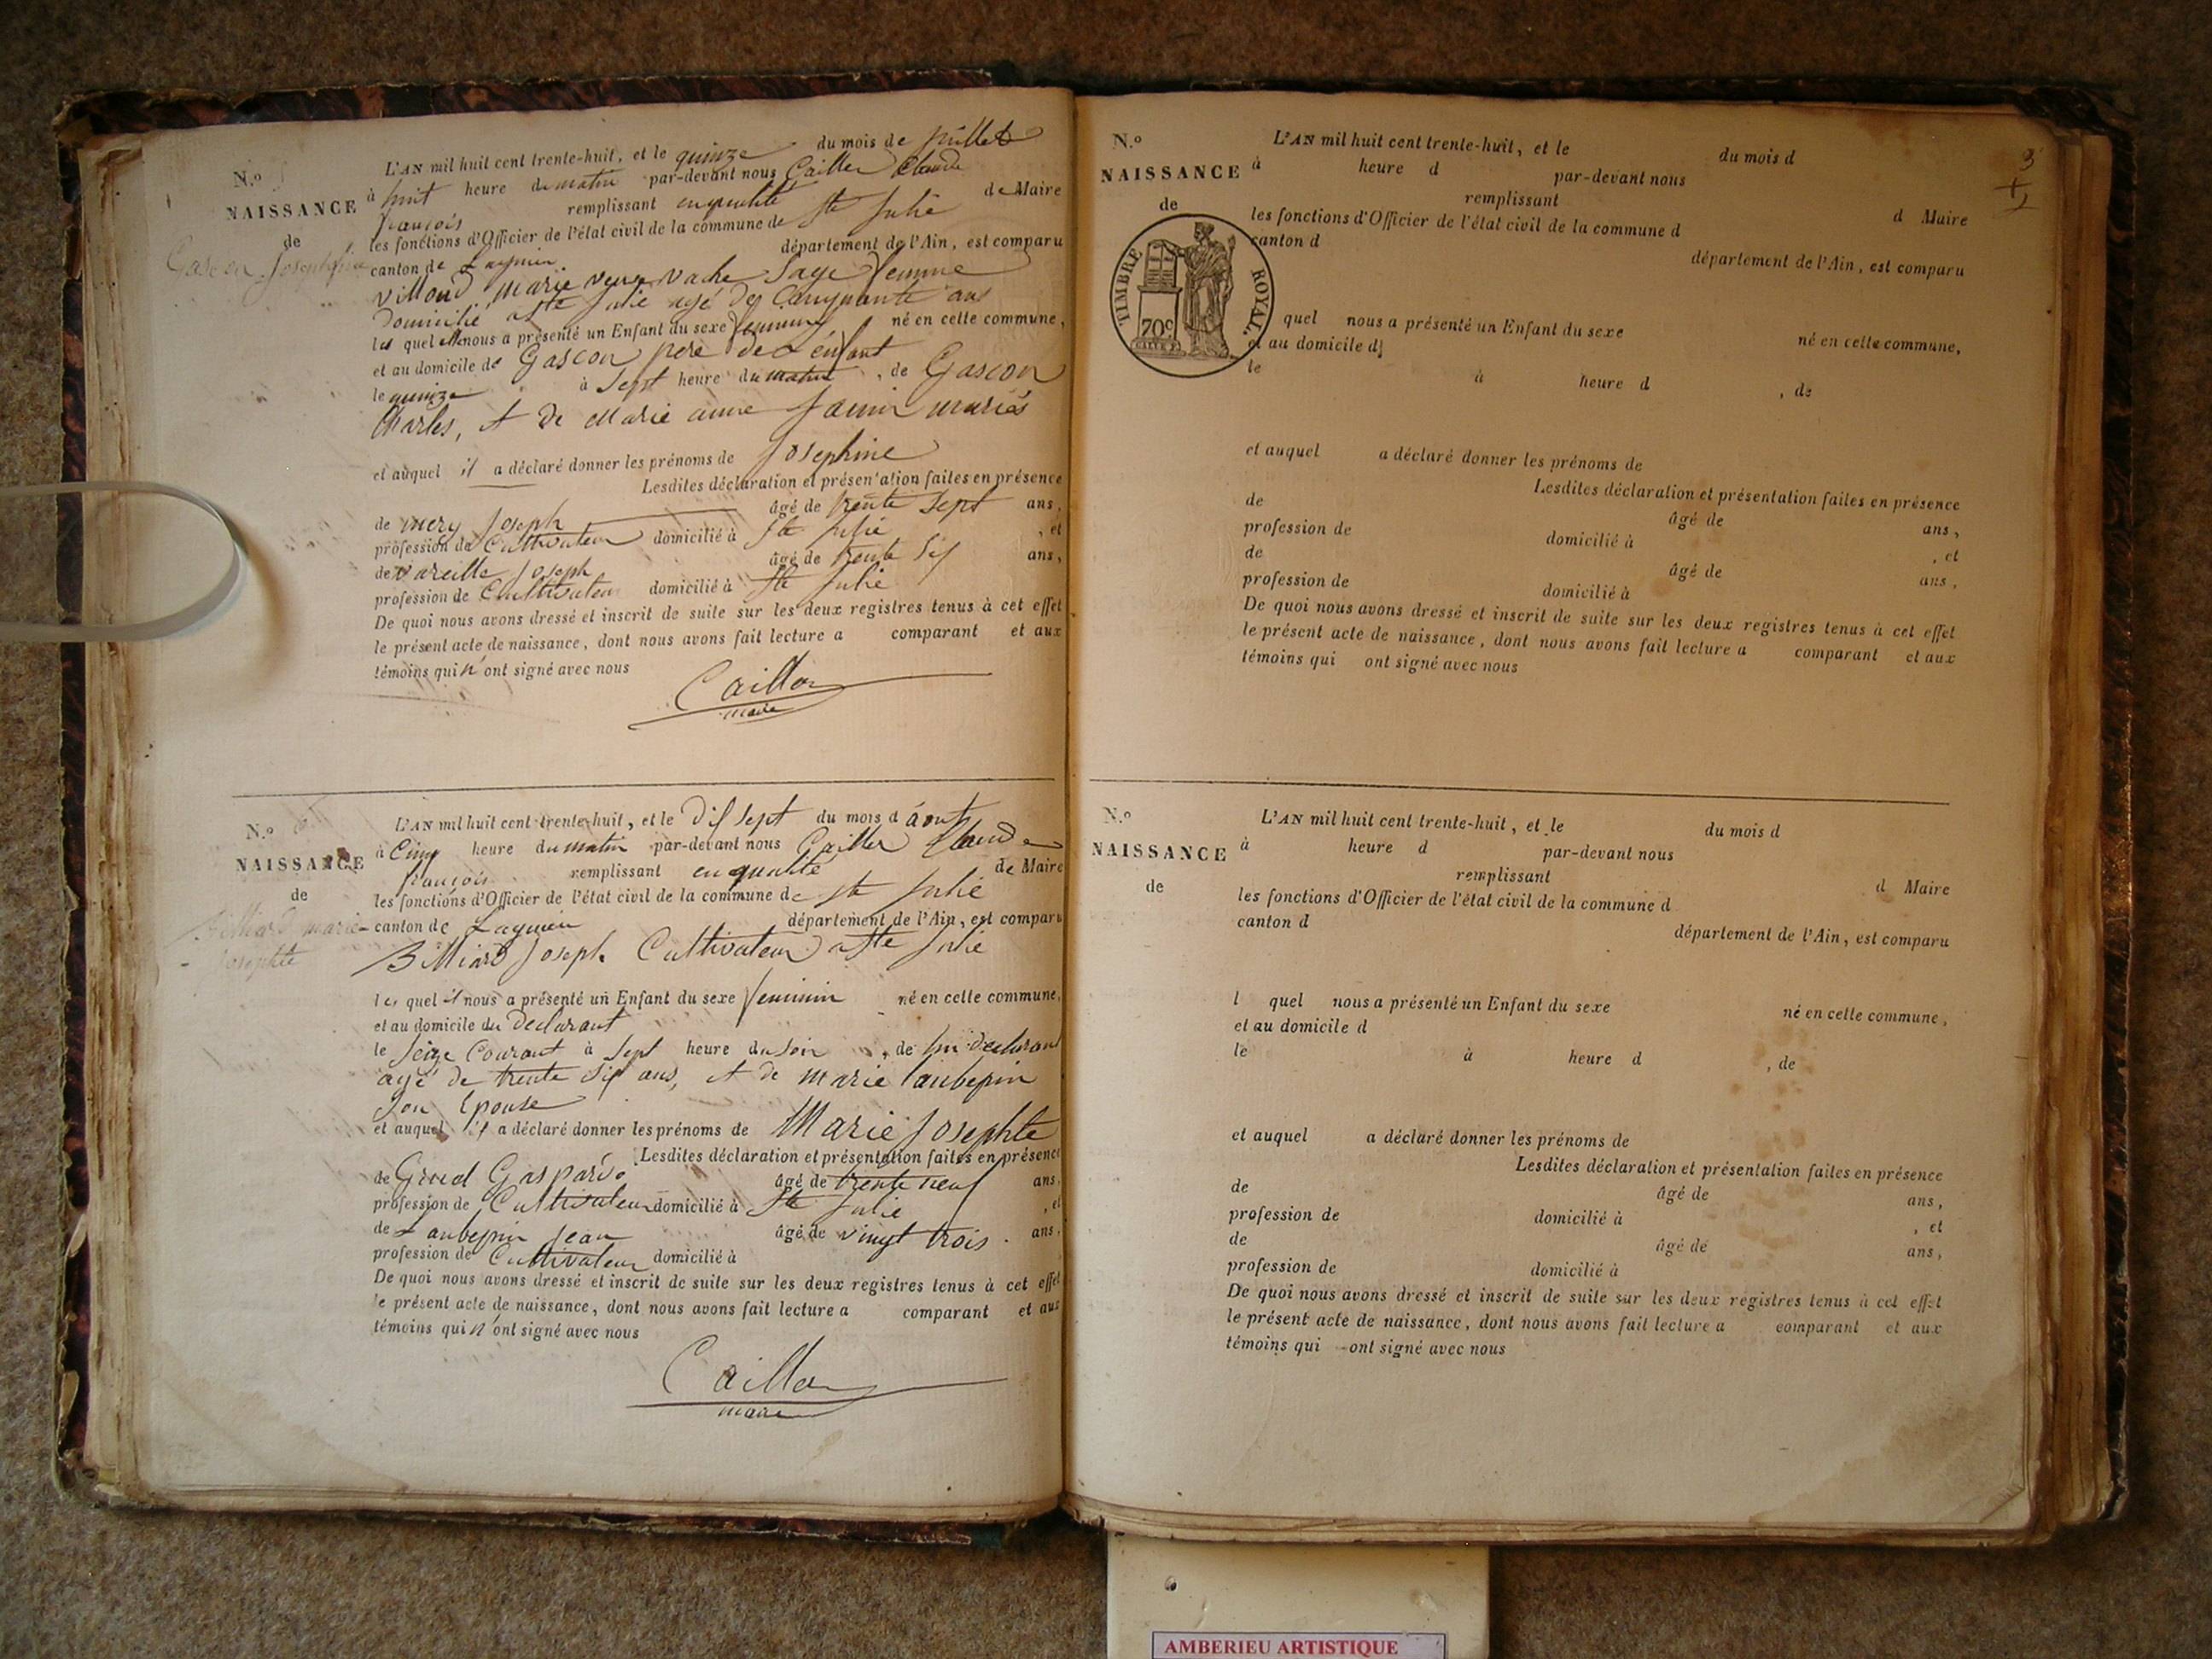 N.o
NAISSANCE
de
Gascon Josephine
L'AN mil huit cent trente-huit, et le quinze du mois de juillet
à huit heure du matin par-devant nous Cailler Claude
françois remplissant en qualité de Maire
les fonctions d'Officier de l'état civil de la commune de Ste Julie
canton de Lagnieu département de l'Ain, est comparu
Marie veuve vache Sage femme
Domicilié a Ste Julie agé de Cinquante ans
la quel elle nous a présenté un Enfant du sexe feminin né en cette commune,
et au domicile de Gascon pere de L enfant
le quinze à Sept heure du matin, de Gascon
Charles, et de Marie anne mariés
et auquel il a déclaré donner les prénoms de Josephine
Lesdites déclaration et présentation faites en présence
de mery Joseph âgé de trente Sept ans,
profession de Cultivateur domicilié à Ste Julie, et
de vareille Joseph âgé de trente Six ans,
profession de Cultivateur domicilié à Ste Julie
De quoi nous avons dressé et inscrit de suite sur les deux registres tenus à cet effet
le présent acte de naissance, dont nous avons fait lecture a comparant et aux
témoins qui n'ont signé avec nous
Cailler
maire
N.o
NAISSANCE
de
Billiard marie
Josephte
L'AN mil huit cent trente-huit, et le Dix Sept du mois d août
à Cinq heure du matin par-devant nous Cailler Claude
françois remplissant en qualité de Maire
les fonctions d'Officier de l'état civil de la commune de Ste Julie
canton de Lagnieu département de l'Ain, est comparu
Billiard Joseph Cultivateur a Ste Julie
le quel il nous a présenté un Enfant du sexe feminin né en cette commune,
et au domicile du Declarant
le Seize Courant à Sept heure du Soir, de lui declarant
agé de trente Six ans, et de marie Laubepin
Son Epouse
et auquel il a déclaré donner les prénoms de Marie Josephte
Lesdites déclaration et présentation faites en présence
de Gaspard âgé de trente neuf ans,
profession de Cultivateur domicilié à Ste Julie, et
de Laubepin Jean âgé de vingt trois ans,
profession de Cultivateur domicilié à
De quoi nous avons dressé et inscrit de suite sur les deux registres tenus à cet effet
le présent acte de naissance, dont nous avons fait lecture a comparant et aux
témoins qui n'ont signé avec nous
Cailler
maire
3
N.o
NAISSANCE
de
TIMBRE ROYAL.
70c
L'AN mil huit cent trente-huit, et le du mois d
à heure d par-devant nous
remplissant d Maire
les fonctions d'Officier de l'état civil de la commune d
canton d département de l'Ain, est comparu
quel nous a présenté un Enfant du sexe né en cette commune,
et au domicile d
le à heure d , de
et auquel a déclaré donner les prénoms de
Lesdites déclaration et présentation faites en présence
de âgé de ans,
profession de domicilié à , et
de âgé de ans,
profession de domicilié à
De quoi nous avons dressé et inscrit de suite sur les deux registres tenus à cet effet
le présent acte de naissance, dont nous avons fait lecture a comparant et aux
témoins qui ont signé avec nous
N.o
NAISSANCE
de
L'AN mil huit cent trente-huit, et le du mois d
à heure d par-devant nous
remplissant d Maire
les fonctions d'Officier de l'état civil de la commune d
canton d département de l'Ain, est comparu
l quel nous a présenté un Enfant du sexe né en cette commune,
et au domicile d
le à heure d , de
et auquel a déclaré donner les prénoms de
Lesdites déclaration et présentation faites en présence
de âgé de ans,
profession de domicilié à , et
de âgé de ans,
profession de domicilié à
De quoi nous avons dressé et inscrit de suite sur les deux registres tenus à cet effet
le présent acte de naissance, dont nous avons fait lecture a comparant et aux
témoins qui ont signé avec nous
AMBERIEU ARTISTIQUE